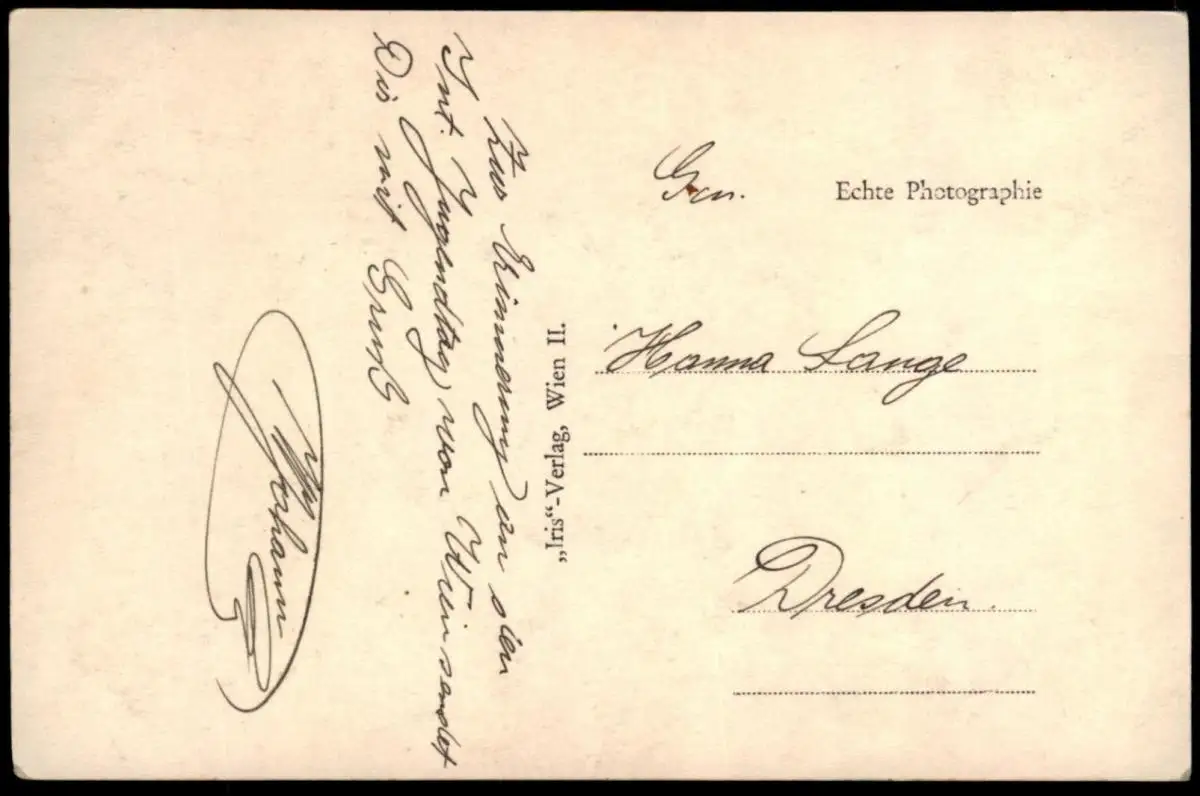 Zur Erinnerung an den
Int. Jugendtag, von Wien sendet
Dir mit Gruß
Johann
„Iris“-Verlag, Wien II.
Echte Photographie
Gen.
Hanna Lange
Dresden.